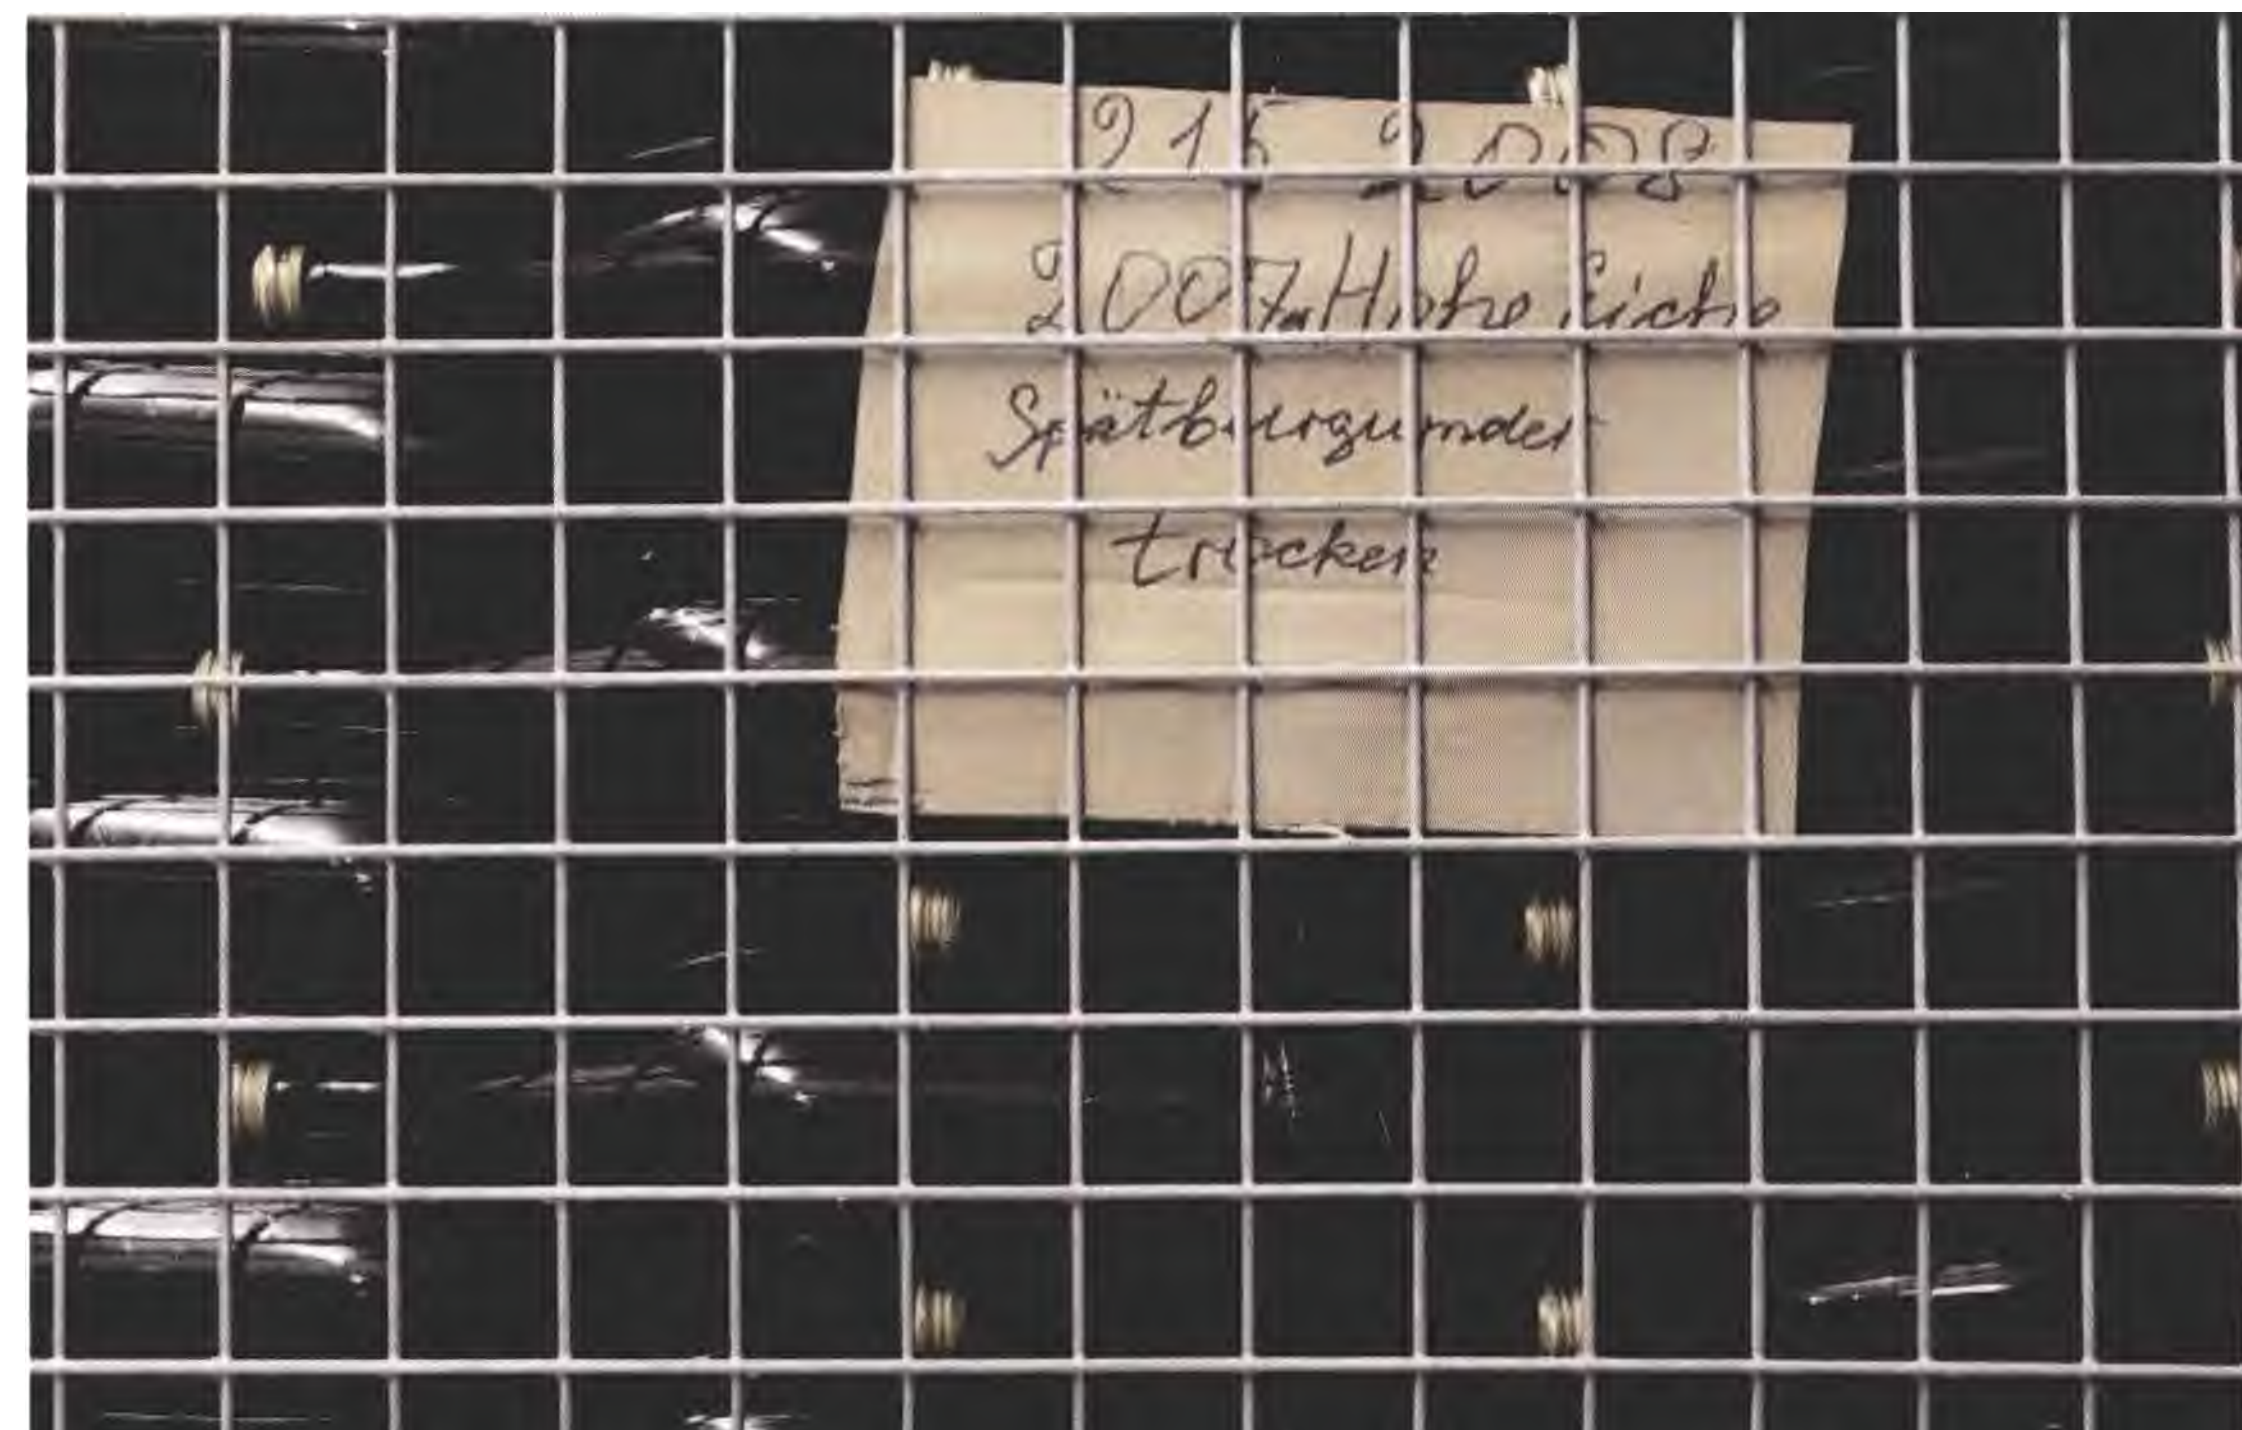 215 2008
2007er Hohe Eiche
Spätburgunder
trocken